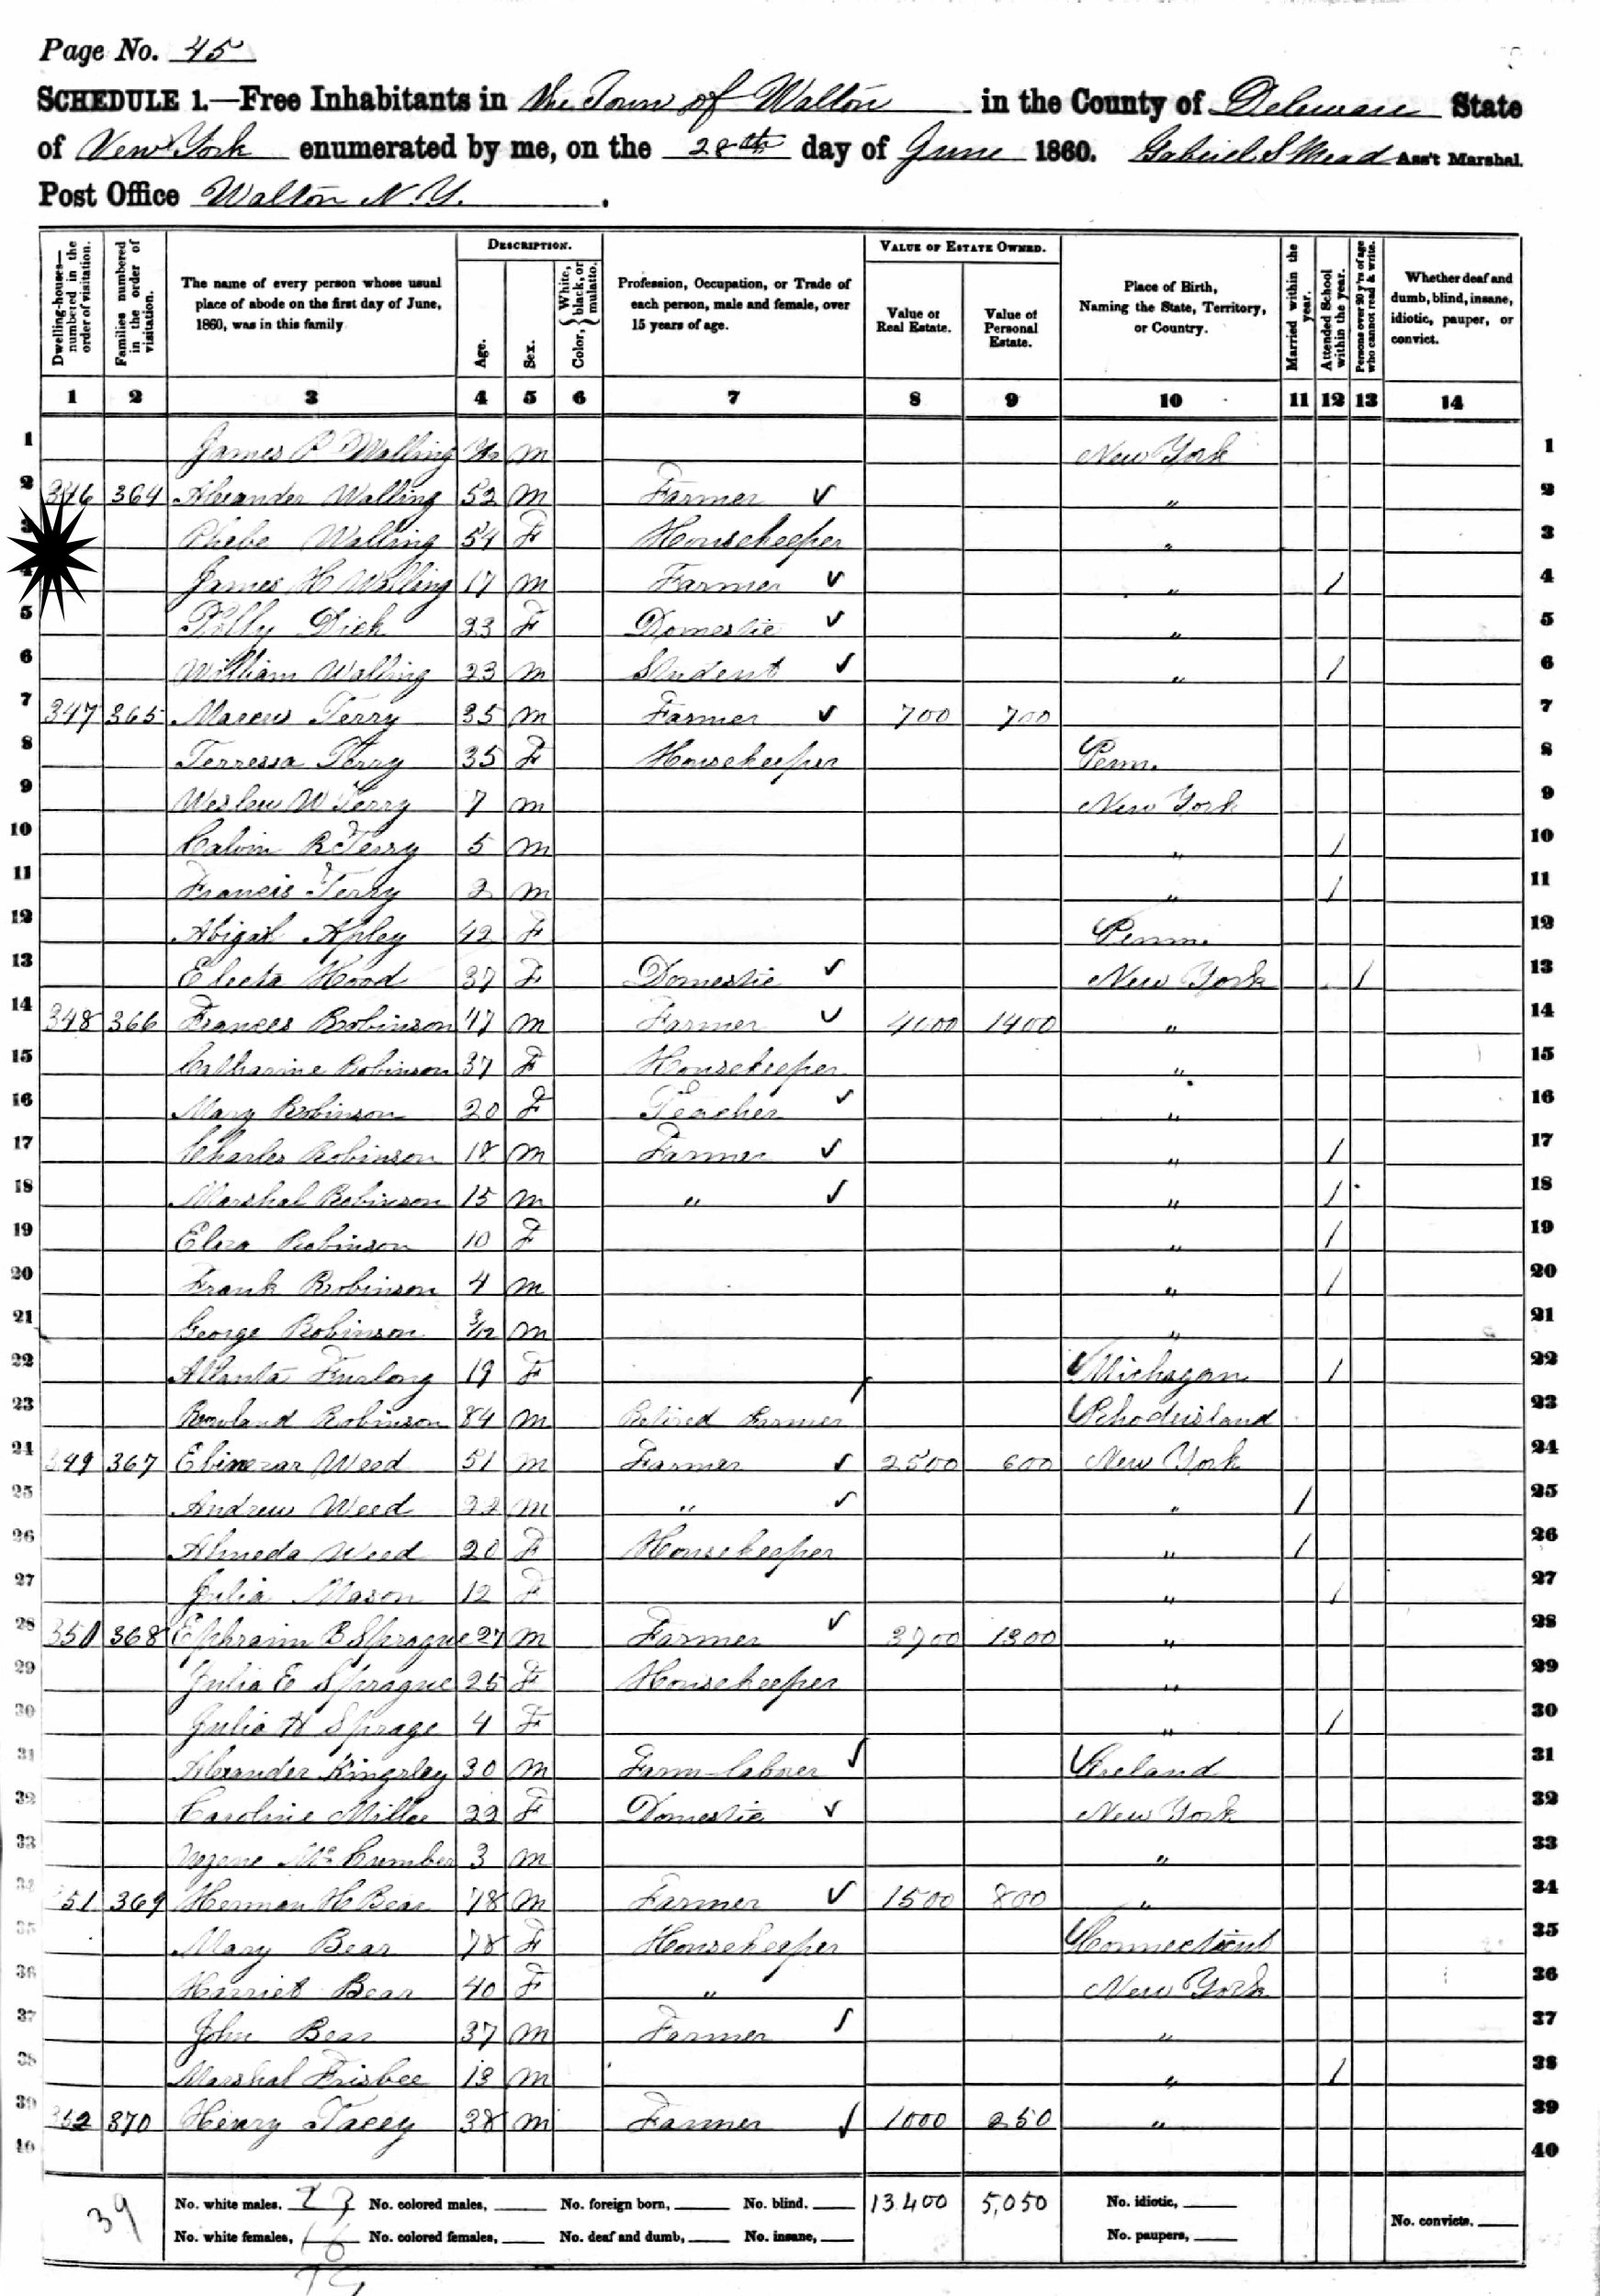 Page No. 45
SCHEDULE 1.—Free Inhabitants in the Town of Walton in the County of Delaware State
of New York enumerated by me, on the 28th day of June 1860. Gabriel S Mead Ass't Marshal.
Post Office Walton N.Y.
Dwelling-houses—numbered in the order of visitation. Families numbered in the order of visitation. The name of every person whose usual place of abode on the first day of June, 1860, was in this family. DESCRIPTION. Age. Sex. Color, White, black, or mulatto. Profession, Occupation, or Trade of each person, male and female, over 15 years of age. VALUE OF ESTATE OWNED. Value of Real Estate. Value of Personal Estate. Place of Birth, Naming the State, Territory, or Country. Married within the year. Attended School within the year. Persons over 20 y'rs of age who cannot read & write. Whether deaf and dumb, blind, insane, idiotic, pauper, or convict.
1 2 3 4 5 6 7 8 9 10 11 12 13 14
1 James P Walling m New York 1
2 346 364 Alexander Walling 52 m Farmer ✓ " 2
3 Phebe Walling 54 F Housekeeper " 3
4 James H Walling 17 m Farmer ✓ " / 4
5 Polly Dick 23 F Domestic ✓ " 5
6 William Walling 23 m Student ✓ " / 6
7 347 365 Marcus Terry 35 m Farmer ✓ 700 700 7
8 Terressa Terry 35 F Housekeeper Penn. 8
9 Weslew W Terry 7 m New York 9
10 Calvin R Terry 5 m " / 10
11 Francis Terry 2 m " / 11
12 Abigal Apley 42 F Penn. 12
13 Electa Hood 37 F Domestic ✓ New York / 13
14 348 366 Frances Robinson 47 m Farmer ✓ 4000 1400 " 14
15 Catharine Robinson 37 F Housekeeper " 15
16 Mary Robinson 20 F Teacher ✓ " 16
17 Charles Robinson 18 m Farmer ✓ " / 17
18 Marshal Robinson 15 m " ✓ " / 18
19 Eliza Robinson 10 F " / 19
20 Frank Robinson 4 m " / 20
21 George Robinson 3/12 m " 21
22 Allanta Furlong 19 F Michagan / 22
23 Rowland Robinson 84 m Retired Farmer Rhodeisland 23
24 349 367 Ebinezar Weed 51 m Farmer ✓ 2500 600 New York 24
25 Andrew Weed 22 m " ✓ " / 25
26 Almeda Weed 20 F Housekeeper " / 26
27 Julia Mason 12 F " / 27
28 350 368 Ephraim B Sprague 27 m Farmer ✓ 3700 1300 " 28
29 Julia E Sprague 25 F Housekeeper " 29
30 Julia H Sprage 4 F " / 30
31 Alexander Kingsley 30 m Farm-laborer ✓ Ireland 31
32 Caroline Miller 22 F Domestic ✓ New York 32
33 Mc Cumber 3 m " 33
34 351 369 Herman H Bear 78 m Farmer ✓ 1500 800 " 34
35 Mary Bear 78 F Housekeeper Connecticut 35
36 Harriet Bear 40 F " New York 36
37 John Bear 37 m Farmer ✓ " 37
38 Marshal Frisbee 13 m " / 38
39 352 370 Henry Tacey 38 m Farmer ✓ 1000 250 " 39
40 40
39 No. white males, 23 No. colored males, No. foreign born, No. blind, 13400 5,050 No. idiotic,
No. white females, 16 No. colored females, No. deaf and dumb, No. insane, No. paupers, No. convicts,